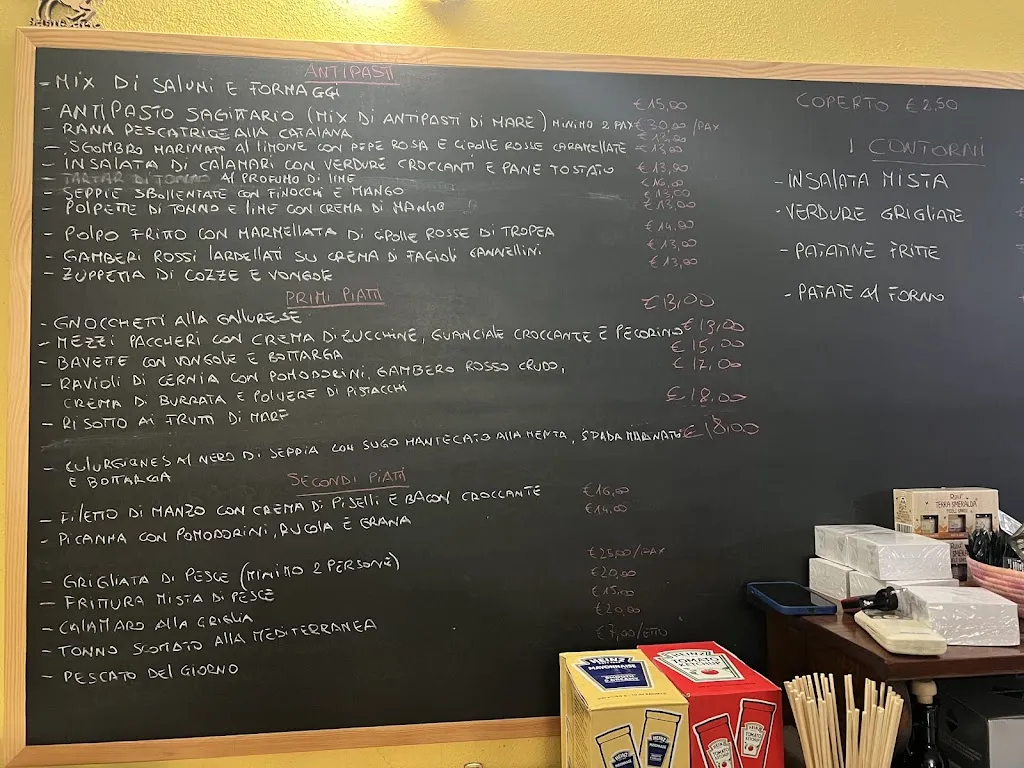 ANTIPASTI
- MIX DI SALUMI E FORMAGGI €15,00
- ANTIPASTO SAGITTARIO (MIX DI ANTIPASTI DI MARE) MINIMO 2 PAX €30,00/PAX
- RANA PESCATRICE ALLA CATALANA
- SGOMBRO MARINATO AL LIMONE CON PEPE ROSA E CIPOLLE ROSSE CARAMELLATE €13,00
- INSALATA DI CALAMARI CON VERDURE CROCCANTI E PANE TOSTATO €13,00
- TARTAR DI TONNO AL PROFUMO DI LIME €16,00
- SEPPIE SBOLLENTATE CON FINOCCHI E MANGO €13,00
- POLPETTE DI TONNO E LIME CON CREMA DI MANGO €13,00
- POLPO FRITTO CON MARMELLATA DI CIPOLLE ROSSE DI TROPEA €14,00
- GAMBERI ROSSI LARDELLATI SU CREMA DI FAGIOLI CANNELLINI €13,00
- ZUPPETTA DI COZZE E VONGOLE €13,00
PRIMI PIATTI
- GNOCCHETTI ALLA GALLURESE €13,00
- MEZZI PACCHERI CON CREMA DI ZUCCHINE, GUANCIALE CROCCANTE E PECORINO €13,00
- BAVETTE CON VONGOLE E BOTTARGA €15,00
- RAVIOLI DI CERNIA CON POMODORINI, GAMBERO ROSSO CRUDO, €17,00
CREMA DI BURRATA E POLVERE DI PISTACCHI
- RISOTTO AI FRUTTI DI MARE €18,00
- CULURGIONES AL NERO DI SEPPIA CON SUGO MANTECATO ALLA MENTA, SPADA MARINATO €18,00
E BOTTARGA
SECONDI PIATTI
- FILETTO DI MANZO CON CREMA DI PISELLI E BACON CROCCANTE €16,00
- PICANHA CON POMODORINI, RUCOLA E GRANA €14,00
- GRIGLIATA DI PESCE (MINIMO 2 PERSONE) €25,00/PAX
- FRITTURA MISTA DI PESCE €20,00
- CALAMARO ALLA GRIGLIA €15,00
- TONNO SCOTTATO ALLA MEDITERRANEA €20,00
- PESCATO DEL GIORNO €7,00/ETTO
COPERTO €2,50
I CONTORNI
- INSALATA MISTA
- VERDURE GRIGLIATE
- PATATINE FRITTE
- PATATE AL FORNO
TERRA SMERALDA
HEINZ
MAYONNAISE
HEINZ
TOMATO
KETCHUP